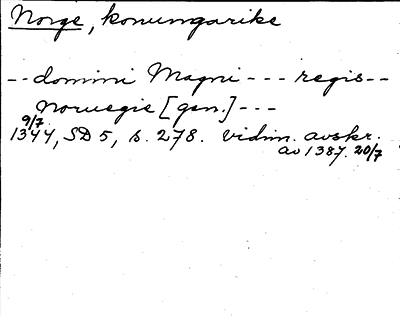 Norge, konungarike
-- domini Magni --- regis --
Noruegie [gen.] ---
9/7
1344, SD 5, s. 278. vidim. avskr.
av 1387. 20/7